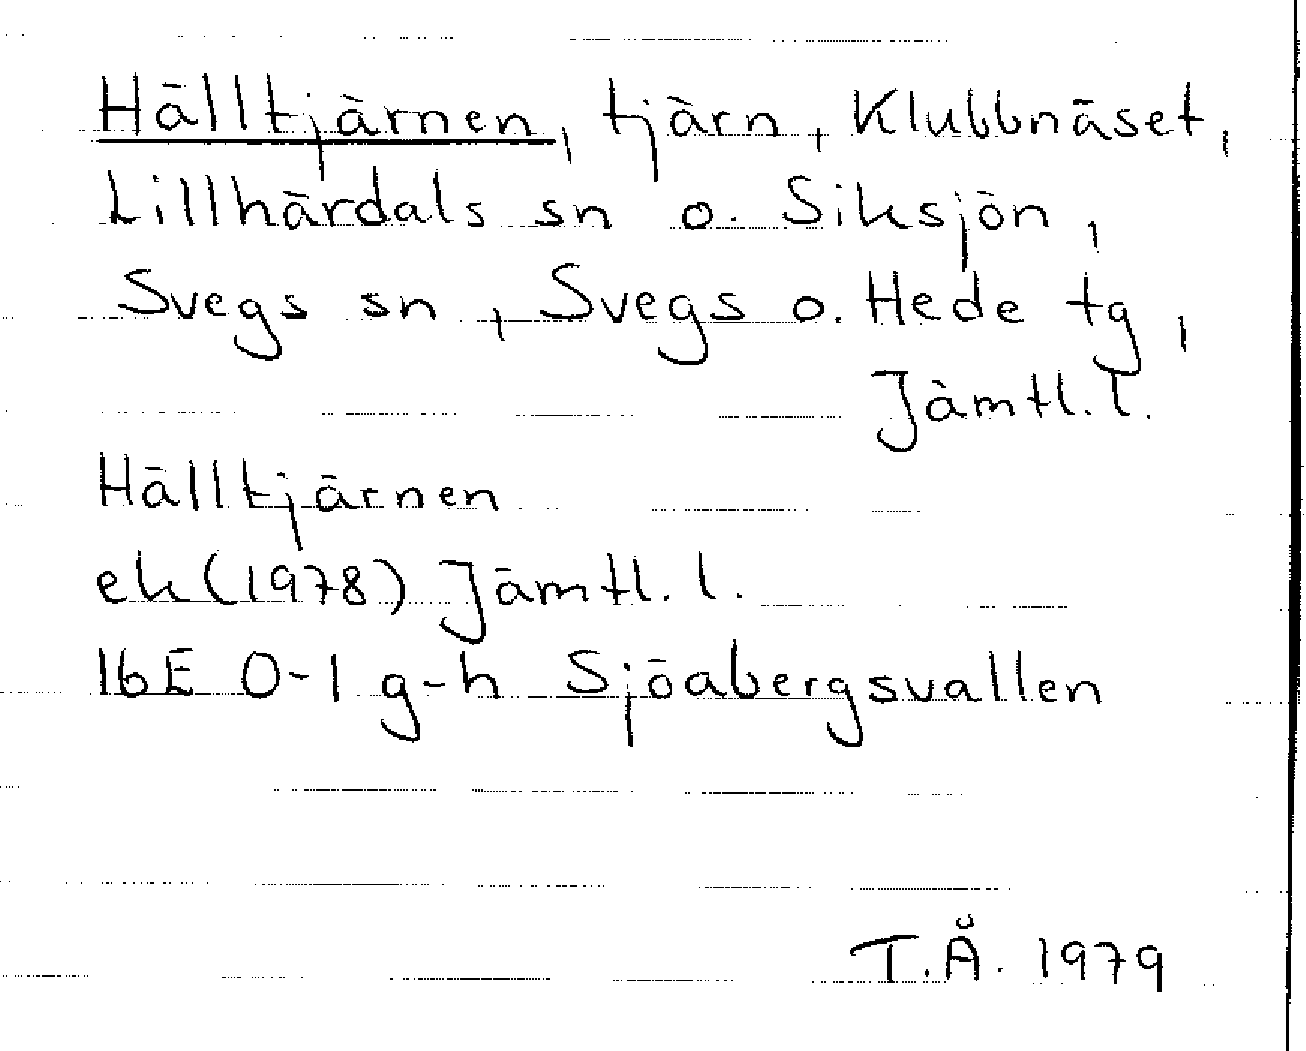 Hälltjärnen, tjärn, Klubbnäset,
Lillhärdals sn o. Siksjön,
Svegs sn, Svegs o. Hede tg,
Jämtl. l.
Hälltjärnen
ek (1978) Jämtl. l.
16E 0-1 g-h Sjöabergsvallen
T.Å. 1979